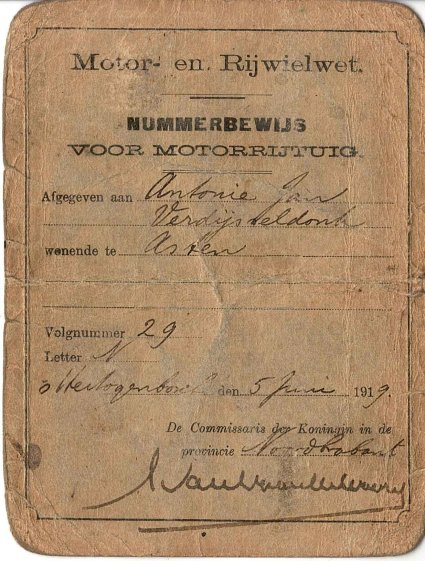 Motor- en Rijwielwet.
NUMMERBEWIJS
VOOR MOTORRIJTUIG.
Afgegeven aan Antonie Jan
Verdijsseldonk
wonende te Asten
Volgnummer 29
Letter N
's Hertogenbosch den 5 Juni 1919.
De Commissaris der Koningin in de
provincie Noordbrabant